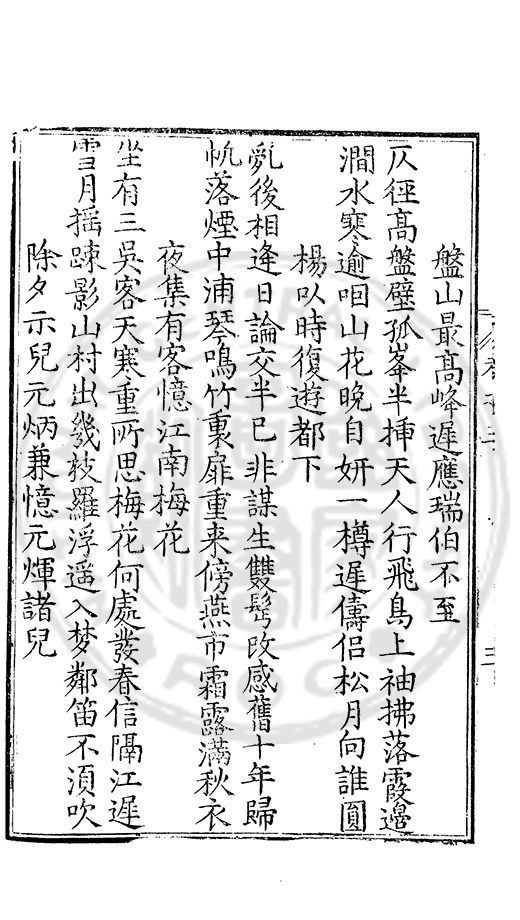 盤山最高峰遲應瑞伯不至
仄徑高盤壁孤峯半揷天人行飛鳥上袖拂落霞邊
澗水寒逾咽山花晚自妍一樽遲儔侶松月向誰圓
楊以時復遊都下
亂後相逢日論交半已非謀生雙髩改感舊十年歸
帆落煙中浦琴鳴竹裏扉重来傍燕市霜露滿秋衣
夜集有客憶江南梅花
坐有三吳客天寒重所思梅花何處發春信隔江遲
雪月揺踈影山村出幾枝羅浮遥入梦鄰笛不須吹
除夕示兒元炳兼憶元煇諸兒